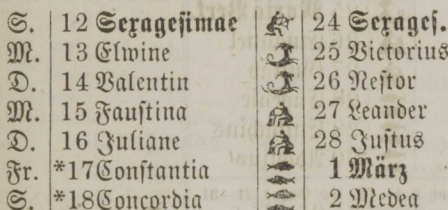 S. 12 Sexagesimae 24 Sexages.
M. 13 Elwine 25 Victorius
D. 14 Valentin 26 Nestor
M. 15 Faustina 27 Leander
D. 16 Juliane 28 Justus
Fr. *17 Constantia 1 März
S. *18 Concordia 2 Medea